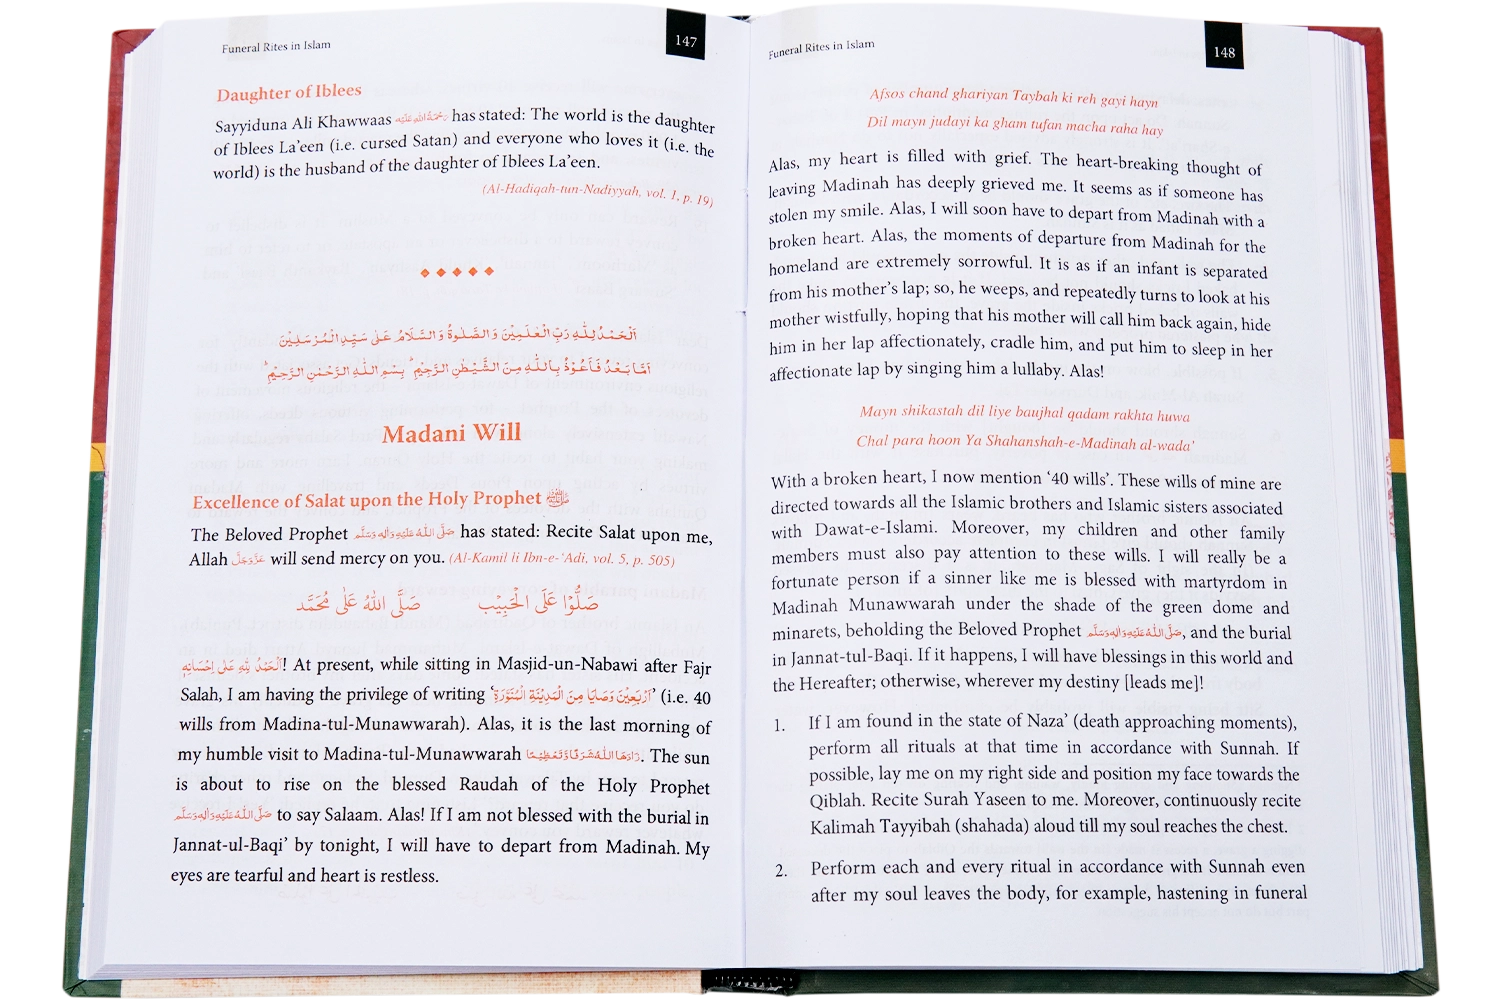 Funeral Rites in Islam
147
Daughter of Iblees
Sayyiduna Ali Khawwaas رَحْمَةُ اللهِ عَلَيْه has stated: The world is the daughter
of Iblees La’een (i.e. cursed Satan) and everyone who loves it (i.e. the
world) is the husband of the daughter of Iblees La’een.
(Al-Hadiqah-tun-Nadiyyah, vol. 1, p. 19)
اَلْحَمْدُ لِلّٰهِ رَبِّ الْعٰلَمِيْنَ وَ الصَّلٰوةُ وَ السَّلَامُ عَلٰى سَيِّدِ الْمُرْسَلِيْنَ
اَمَّا بَعْدُ فَاَعُوْذُ بِاللّٰهِ مِنَ الشَّيْطٰنِ الرَّجِيْمِ ؕ بِسْمِ اللّٰهِ الرَّحْمٰنِ الرَّحِيْمِ ؕ
Madani Will
Excellence of Salat upon the Holy Prophet ﷺ
The Beloved Prophet صَلَّى اللّٰهُ عَلَيْهِ وَاٰلِهٖ وَسَلَّم has stated: Recite Salat upon me,
Allah عَزَّوَجَلَّ will send mercy on you. (Al-Kamil li Ibn-e-‘Adi, vol. 5, p. 505)
صَلُّوْا عَلَى الْحَبِيْب صَلَّى اللّٰهُ عَلٰى مُحَمَّد
اَلْحَمْدُ لِلّٰهِ عَلٰى اِحْسَانِهٖ! At present, while sitting in Masjid-un-Nabawi after Fajr
Salah, I am having the privilege of writing ‘اَرْبَعِيْنَ وَصَايَا مِنَ الْمَدِيْنَةِ الْمُنَوَّرَةِ’ (i.e. 40
wills from Madina-tul-Munawwarah). Alas, it is the last morning of
my humble visit to Madina-tul-Munawwarah زَادَهَا اللّٰهُ شَرَفًا وَّتَعْظِيْمًا. The sun
is about to rise on the blessed Raudah of the Holy Prophet
صَلَّى اللّٰهُ عَلَيْهِ وَاٰلِهٖ وَسَلَّم to say Salaam. Alas! If I am not blessed with the burial in
Jannat-ul-Baqi’ by tonight, I will have to depart from Madinah. My
eyes are tearful and heart is restless.
Funeral Rites in Islam
148
Afsos chand ghariyan Taybah ki reh gayi hayn
Dil mayn judayi ka gham tufan macha raha hay
Alas, my heart is filled with grief. The heart-breaking thought of
leaving Madinah has deeply grieved me. It seems as if someone has
stolen my smile. Alas, I will soon have to depart from Madinah with a
broken heart. Alas, the moments of departure from Madinah for the
homeland are extremely sorrowful. It is as if an infant is separated
from his mother’s lap; so, he weeps, and repeatedly turns to look at his
mother wistfully, hoping that his mother will call him back again, hide
him in her lap affectionately, cradle him, and put him to sleep in her
affectionate lap by singing him a lullaby. Alas!
Mayn shikastah dil liye baujhal qadam rakhta huwa
Chal para hoon Ya Shahanshah-e-Madinah al-wada’
With a broken heart, I now mention ‘40 wills’. These wills of mine are
directed towards all the Islamic brothers and Islamic sisters associated
with Dawat-e-Islami. Moreover, my children and other family
members must also pay attention to these wills. I will really be a
fortunate person if a sinner like me is blessed with martyrdom in
Madinah Munawwarah under the shade of the green dome and
minarets, beholding the Beloved Prophet صَلَّى اللّٰهُ عَلَيْهِ وَاٰلِهٖ وَسَلَّم, and the burial
in Jannat-tul-Baqi. If it happens, I will have blessings in this world and
the Hereafter; otherwise, wherever my destiny [leads me]!
1. If I am found in the state of Naza’ (death approaching moments),
perform all rituals at that time in accordance with Sunnah. If
possible, lay me on my right side and position my face towards the
Qiblah. Recite Surah Yaseen to me. Moreover, continuously recite
Kalimah Tayyibah (shahada) aloud till my soul reaches the chest.
2. Perform each and every ritual in accordance with Sunnah even
after my soul leaves the body, for example, hastening in funeral